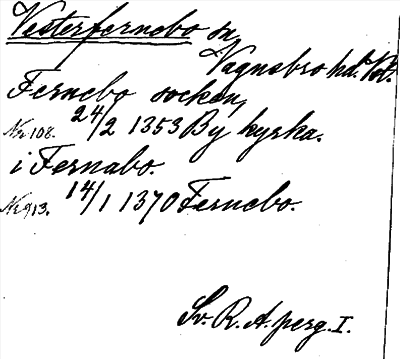 Vesterfernebo sn,
Vagnsbro hd. Vst.
Fernebo socken,
Nr 108. 24/2 1353 By kyrka.
i Fernabo.
Nr 913. 14/1 1370 Fernebo.
Sv. R. A. perg. I.